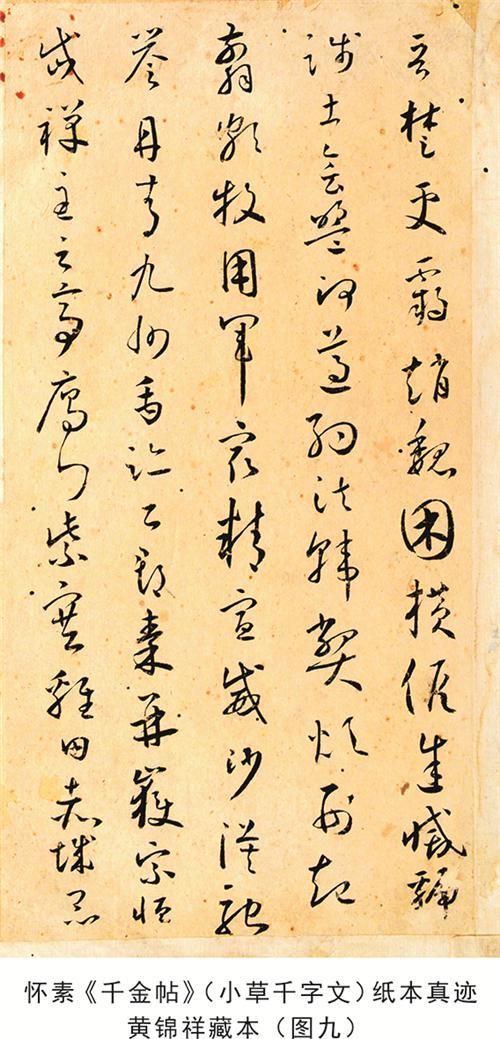 晉楚更霸趙魏困橫假途滅虢
踐土會盟何遵約法韓弊煩刑起
翦頗牧用軍最精宣威沙漠馳
譽丹青九州禹跡百郡秦并嶽宗恒
岱禪主云亭雁門紫塞雞田赤城昆
怀素《千金帖》（小草千字文）纸本真迹
黄锦祥藏本（图九）